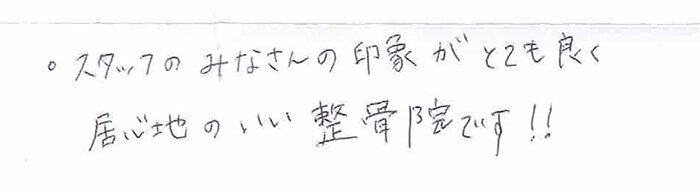 。スタッフのみなさんの印象がとても良く
居心地のいい整骨院です!!